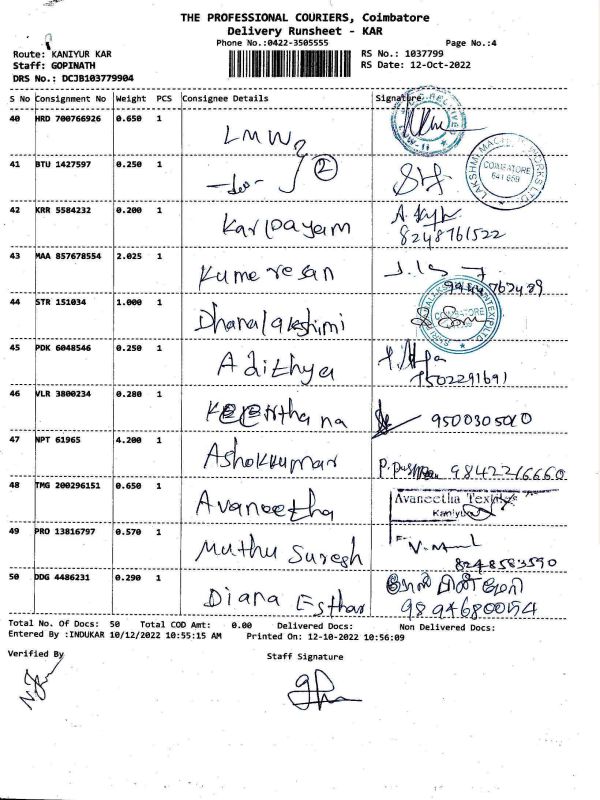 THE PROFESSIONAL COURIERS, Coimbatore
Delivery Runsheet - KAR
Phone No.:0422-3505555 Page No.:4
Route: KANIYUR KAR RS No.: 1037799
Staff: GOPINATH RS Date: 12-Oct-2022
DRS No.: DCJB103779904
S No Consignment No Weight PCS Consignee Details Signature
40 HRD 700766926 0.650 1 LMW
41 BTU 1427597 0.250 1 -do- 2 COIMBATORE 641 659
42 KRR 5584232 0.200 1 Karupayam 8248761522
43 MAA 857678554 2.025 1 Kumaresan
44 STR 151034 1.000 1 Dhanalakshimi COIMBATORE
45 PDK 6048546 0.250 1 Adithya 7502291691
46 VLR 3800234 0.280 1 Keerthana 9500305010
47 NPT 61965 4.200 1 Ashokkumar 9842216660
48 TMG 200296151 0.650 1 Avaneetha Avaneetha Texfab Kaniyur
49 PRO 13816797 0.570 1 Muthu Suresh 8248583590
50 DDG 4486231 0.290 1 Diana Esthar
Total No. Of Docs: 50 Total COD Amt: 0.00 Delivered Docs: Non Delivered Docs:
Entered By :INDUKAR 10/12/2022 10:55:15 AM Printed On: 12-10-2022 10:56:09
Verified By Staff Signature